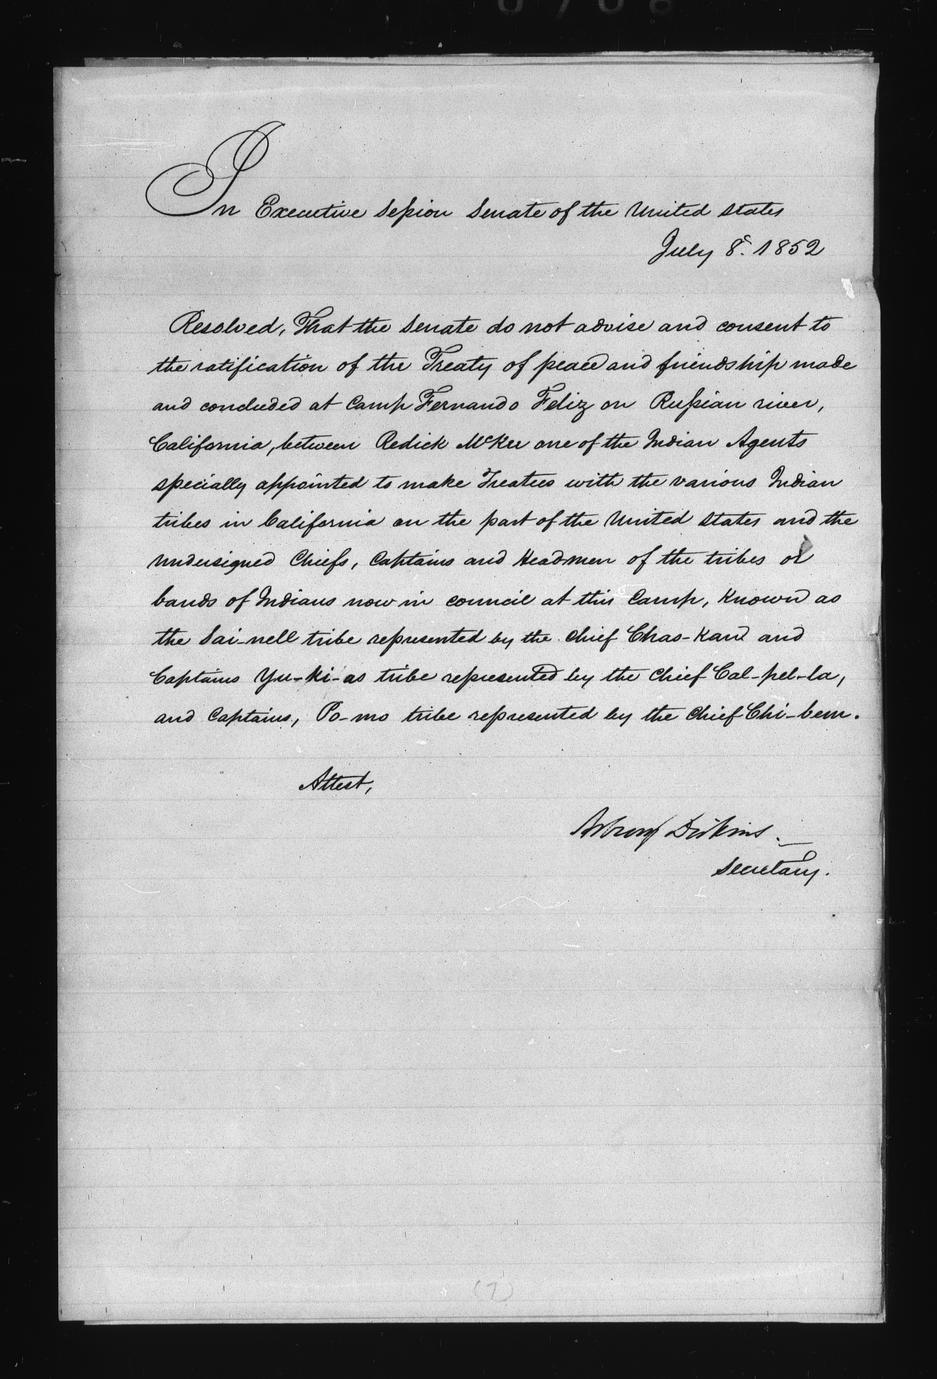 In Executive Session Senate of the United States
July 8. 1852
Resolved, That the Senate do not advise and consent to
the ratification of the Treaty of peace and friendship made
and concluded at Camp Fernando Feliz on Russian river,
California, between Redick McKee one of the Indian Agents
specially appointed to make Treaties with the various Indian
tribes in California on the part of the United States and the
undersigned Chiefs, Captains and Headmen of the tribes or
bands of Indians now in council at this Camp, known as
the Sai-nell tribe represented by the Chief Chas-Kaw and
Captains Yu-ki-as tribe represented by the Chief Cal-pel-la,
and Captains, Po-mo tribe represented by the Chief Chi-bem.
Attest,
Asbury Dickins.
Secretary.
(7)